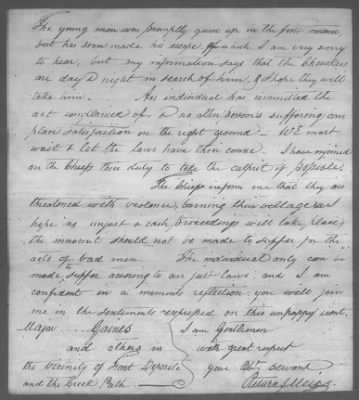 The young man was promptly given up in the first instance,
but has since made his escape, which I am very sorry
to hear, but my information says that the Cherokees
are day & night in search of him, & I hope they will
take him. An individual has committed the
act complained of & no other person's suffering can
place satisfaction on the right ground. We must
wait & let the laws have their course. I have enjoined
on the Chiefs their duty to take the culprit if possible.
The Chiefs inform me that they are
threatened with violence, burning their villages &c. I
hope no unjust or rash proceedings will take place;
the innocent should not be made to suffer for the
acts of bad men. The individual only can be
made to suffer according to our just laws, and I am
confident on a moments reflection, you will join
me in the sentiments expressed on this unhappy event.
Major Gaines I am Gentlemen
and others in with great respect
the vicinity of Fort Deposit your Obt. Servant
and the Creek Path Return J. Meigs